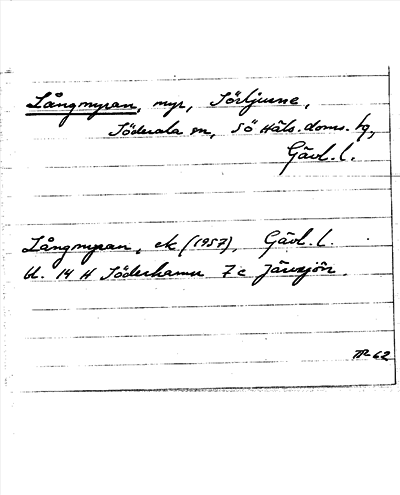 Långmyran, myr, Sörljusne,
Söderala sn, Sö Häls. doms. hg,
Gävl. l.
Långmyran, ek (1957), Gävl. l.
bl. 14 H Söderhamn 7 c Järvsjön.
62